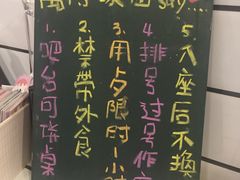 say
1、吧台可拼桌
2.禁带外食
3.用歺限时1小时
4.排号过号作
5.入座后不换